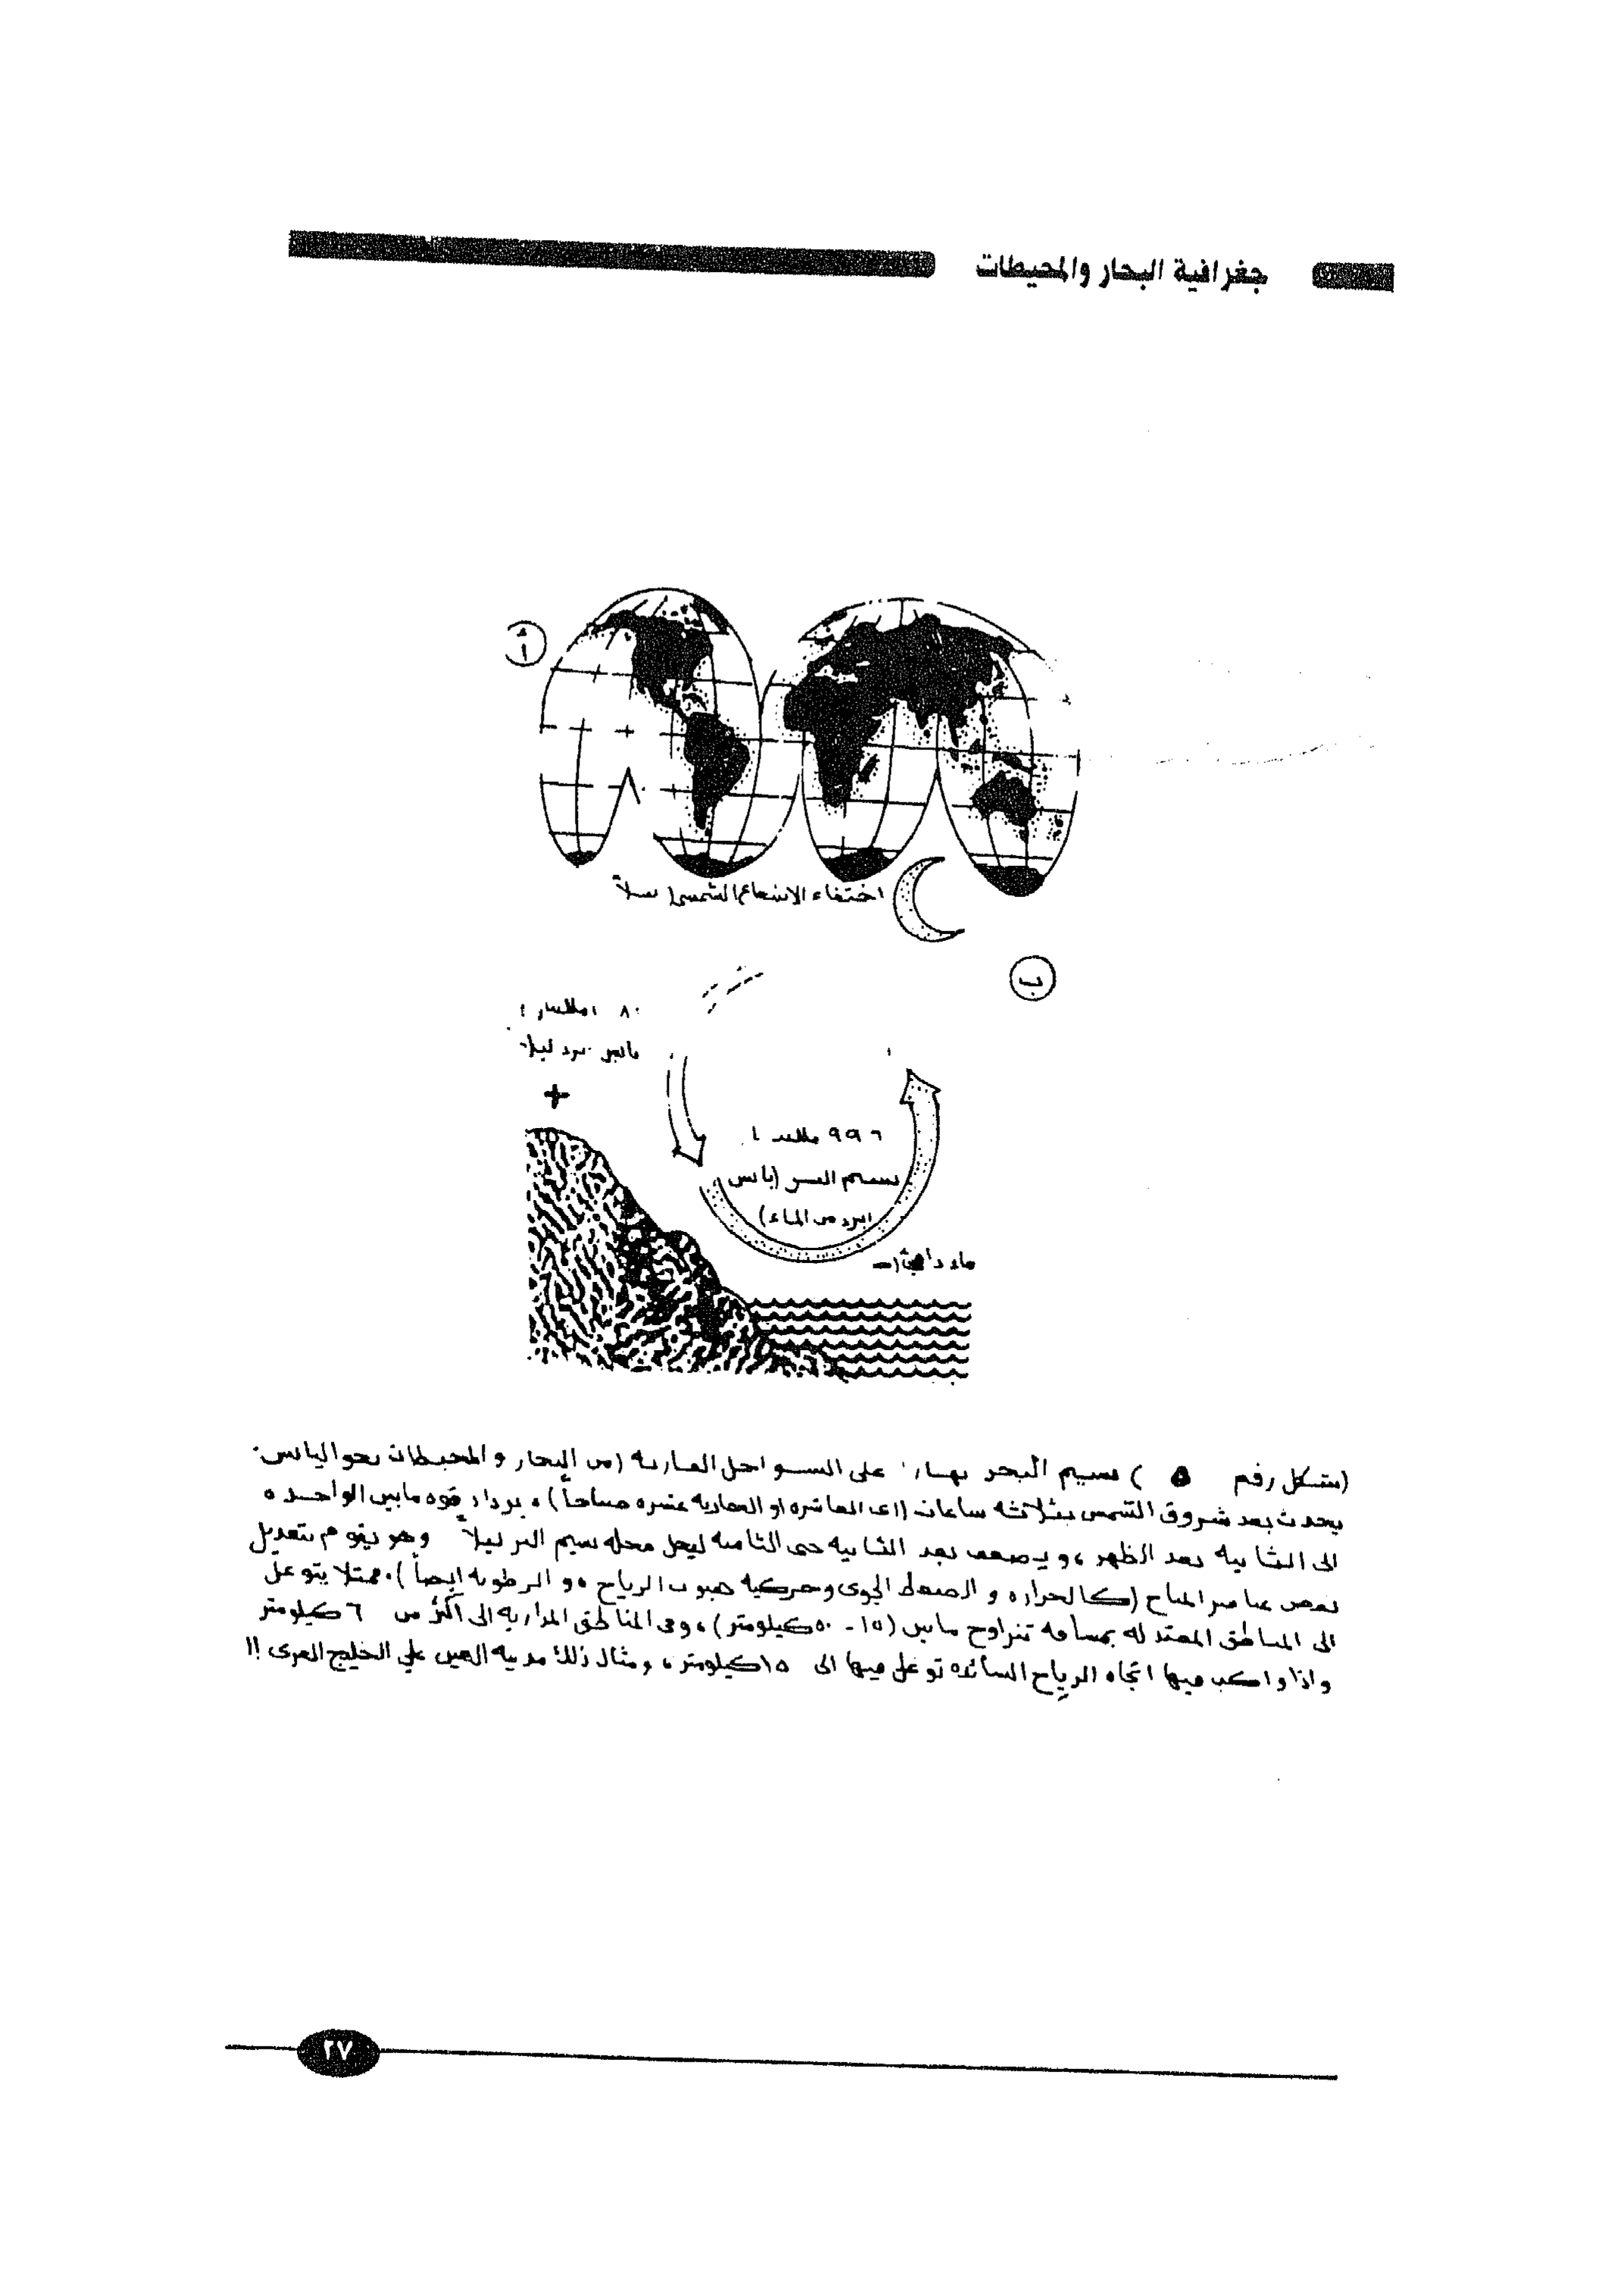 جغرافية البحار والمحيطات
أ
اختفاء الاشعاع الشمسى ليلاً
ب
يابس يبرد ليلاً
+
٩٩٦ ملليبار
نسيم البر (يابس
ابرد من الماء)
ماء دافئ
(شكل رقم ٥ ) نسيم البحر نهارا على السواحل القاريه (من البحار والمحيطات نحو اليابس.
يحدث بعد شروق الشمس بثلاثه ساعات (اى العاشره او الحاديه عشره صباحاً)، يزداد قوه مابين الواحده
الى الثانيه بعد الظهر، ويضعف بعد الثانيه حتى الثامنه ليحل محله نسيم البر ليلاً وهو يقوم بتعديل
بعض عناصر المناخ (كالحراره و الضغط الجوى وحركيه هبوب الرياح، و الرطوبه ايضاً). فمثلا يتوغل
الى المناطق المعتدله بمسافه تتراوح مابين (١٥ - ٥٠ كيلومتر)، وفى المناطق المداريه الى اكثر من ٦ كيلومتر
واذا واكب فيها اتجاه الرياح السائده توغل فيها الى ١٥ كيلومتر، ومثال ذلك مدينه العين على الخليج العربى !!
٢٧